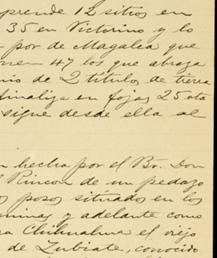 prende 12 sitios en
35 en Victorino y lo
por de Magalea que
nen 47 los que abraza
nio de 2 titulos de tierra
finaliza en fojas 25 sta
sigue desde ella al
hecha por el Br. Don
Rincon de un pedazo
s posos situados en los
minas y adelante como
ra Chihuahua el viejo
de Zubiate, conocido